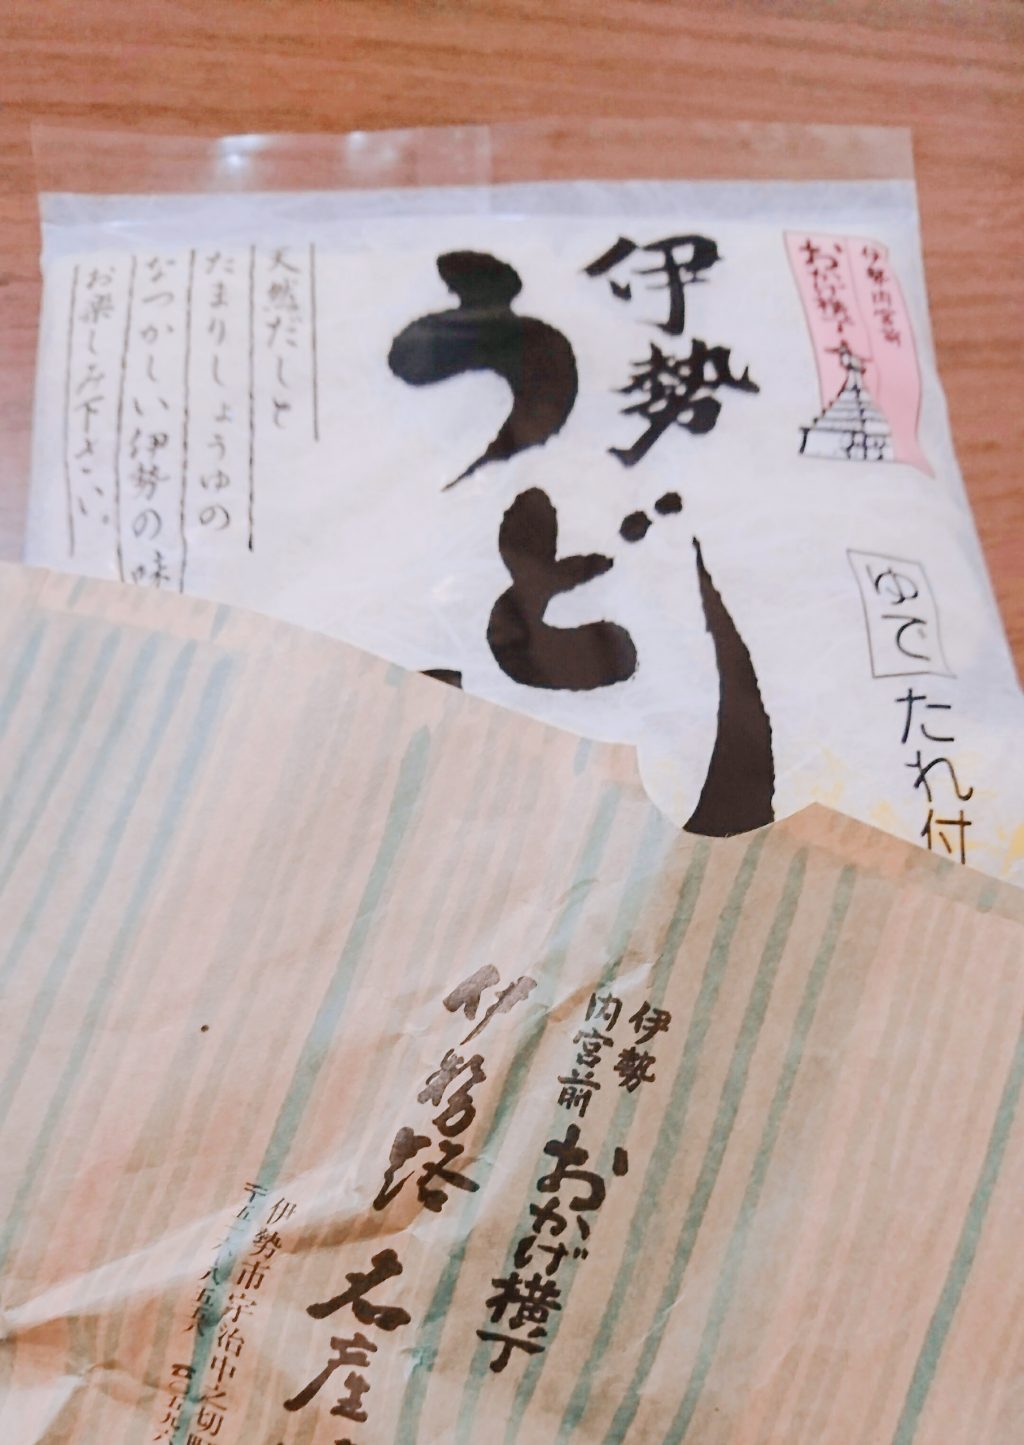 伊勢内宮前
おかげ横丁
ゆで
たれ付
伊勢
うど
天然だしと
たまりしょうゆの
なつかしい伊勢の味
お楽しみ下さい
伊勢
内宮前
おかげ横丁
伊勢路
名産
伊勢市宇治中之切町